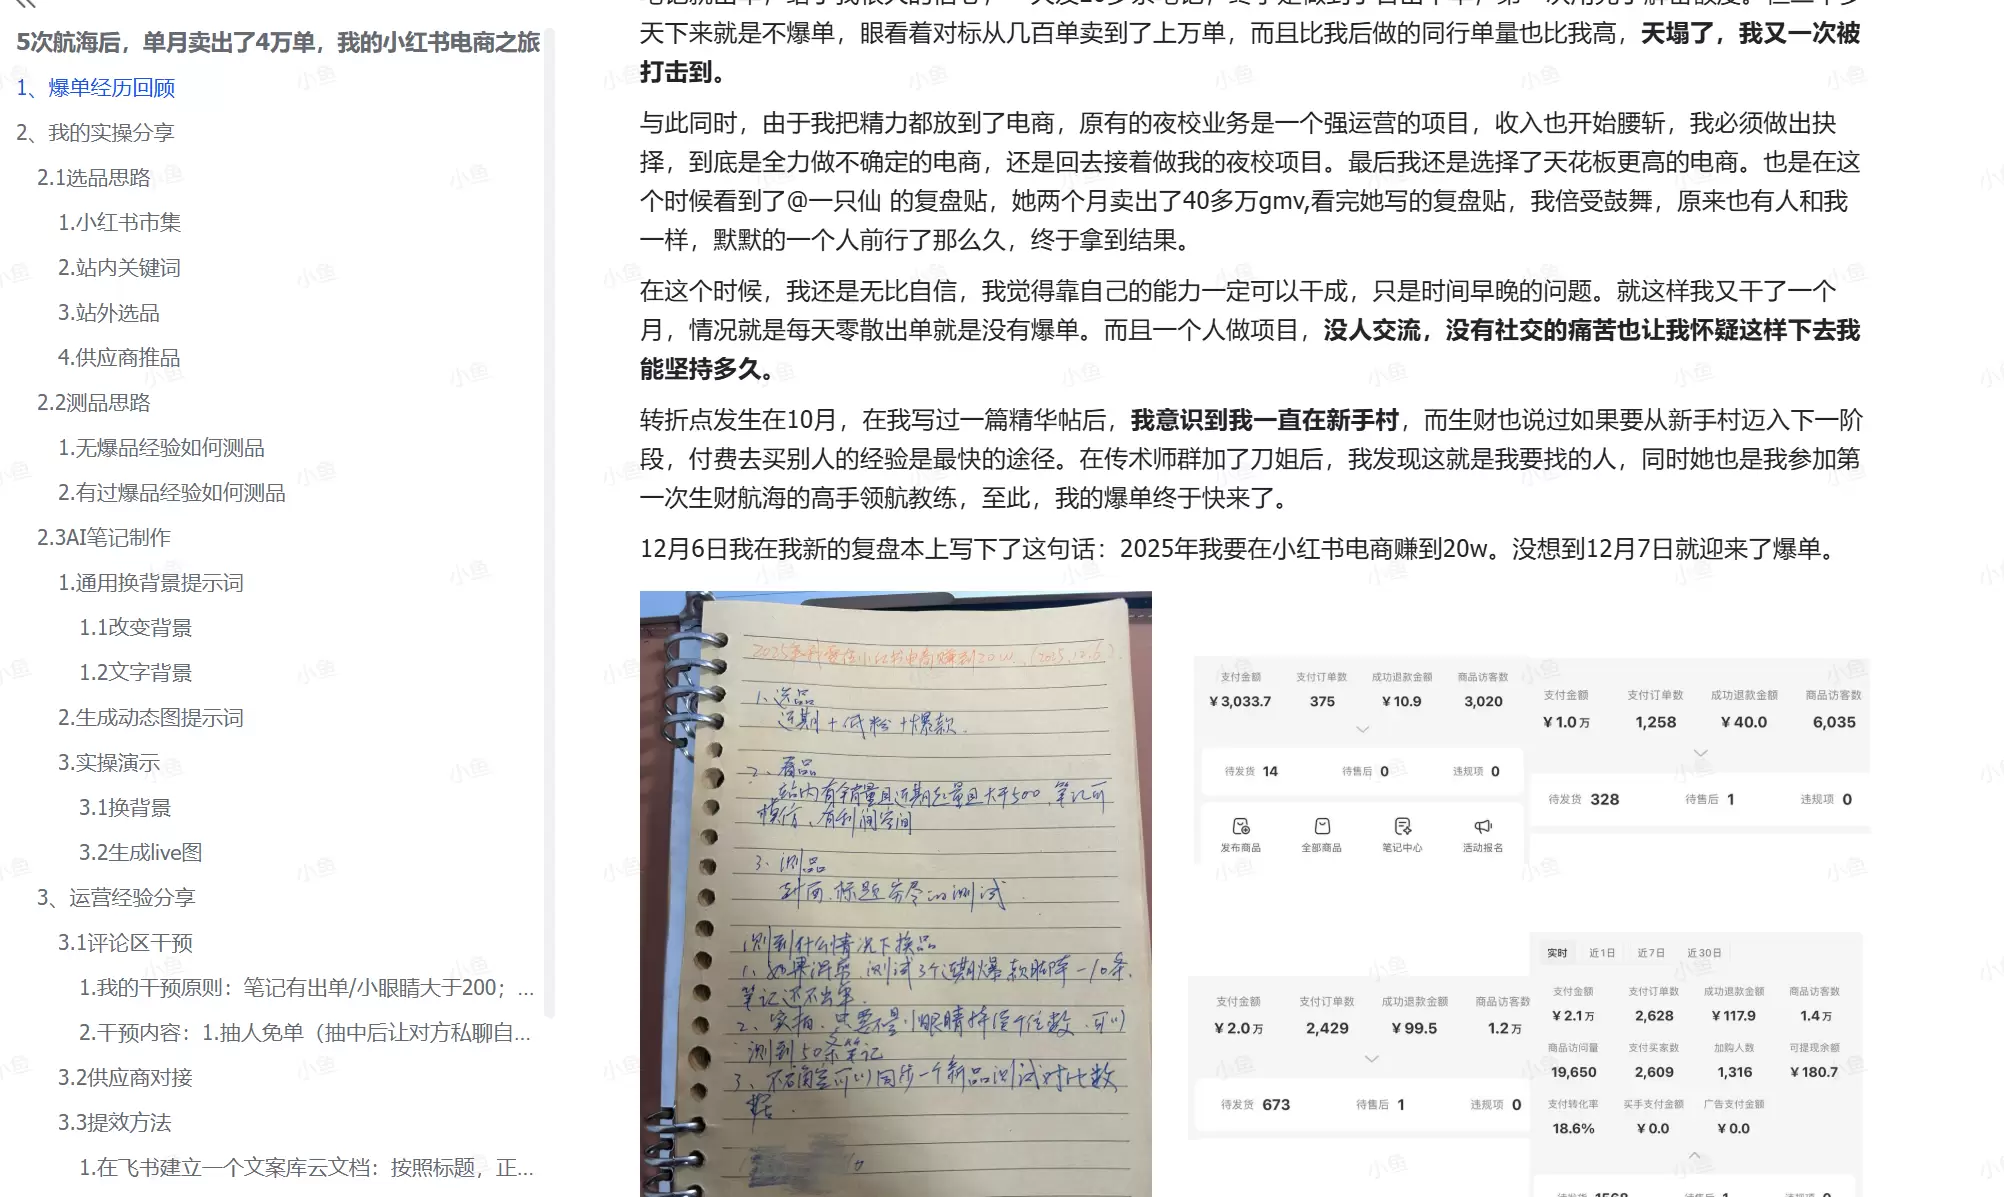 5次航海后，单月卖出了4万单，我的小红书电商之旅
1、爆单经历回顾
2、我的实操分享
2.1选品思路
1.小红书市集
2.站内关键词
3.站外选品
4.供应商推品
2.2测品思路
1.无爆品经验如何测品
2.有过爆品经验如何测品
2.3AI笔记制作
1.通用换背景提示词
1.1改变背景
1.2文字背景
2.生成动态图提示词
3.实操演示
3.1换背景
3.2生成live图
3、运营经验分享
3.1评论区干预
1.我的干预原则：笔记有出单/小眼睛大于200；...
2.干预内容：1.抽人免单（抽中后让对方私聊自...
3.2供应商对接
3.3提效方法
1.在飞书建立一个文案库云文档：按照标题，正...
天下来就是不爆单，眼看着对标从几百单卖到了上万单，而且比我后做的同行单量也比我高，天塌了，我又一次被
打击到。
与此同时，由于我把精力都放到了电商，原有的夜校业务是一个强运营的项目，收入也开始腰斩，我必须做出抉
择，到底是全力做不确定的电商，还是回去接着做我的夜校项目。最后我还是选择了天花板更高的电商。也是在这
个时候看到了@一只仙 的复盘贴，她两个月卖出了40多万gmv,看完她写的复盘贴，我倍受鼓舞，原来也有人和我
一样，默默的一个人前行了那么久，终于拿到结果。
在这个时候，我还是无比自信，我觉得靠自己的能力一定可以干成，只是时间早晚的问题。就这样我又干了一个
月，情况就是每天零散出单就是没有爆单。而且一个人做项目，没人交流，没有社交的痛苦也让我怀疑这样下去我
能坚持多久。
转折点发生在10月，在我写过一篇精华帖后，我意识到我一直在新手村，而生财也说过如果要从新手村迈入下一阶
段，付费去买别人的经验是最快的途径。在传术师群加了刀姐后，我发现这就是我要找的人，同时她也是我参加第
一次生财航海的高手领航教练，至此，我的爆单终于快来了。
12月6日我在我新的复盘本上写下了这句话：2025年我要在小红书电商赚到20w。没想到12月7日就迎来了爆单。
2025年我要在小红书电商赚到20W.（2025.12.6）.
1、选品
近期+低粉+爆款.
2、看品
站内有销量且近期起量且大于500、笔记可
模仿、有利润空间
3、测品
封面、标题穷尽的测试
测到什么情况下换品
1、如果混剪、测试3个近期爆款脚本一10条
笔记还不出单.
2、实拍、只要不是小眼睛持续个位数、可以
测到50条笔记
3、不确定可以同步一个新品测试对比数
据.
支付金额 支付订单数 成功退款金额 商品访客数
¥3,033.7 375 ¥10.9 3,020
待发货 14 待售后 0 违规项 0
发布商品 全部商品 笔记中心 活动报名
支付金额 支付订单数 成功退款金额 商品访客数
¥1.0万 1,258 ¥40.0 6,035
待发货 328 待售后 1 违规项 0
支付金额 支付订单数 成功退款金额 商品访客数
¥2.0万 2,429 ¥99.5 1.2万
待发货 673 待售后 1 违规项 0
实时 近1日 近7日 近30日
支付金额 支付订单数 成功退款金额 商品访客数
¥2.1万 2,628 ¥117.9 1.4万
商品访问量 支付买家数 加购人数 可提现余额
19,650 2,609 1,316 ¥180.7
支付转化率 买手支付金额 广告支付金额
18.6% ¥0.0 ¥0.0
小鱼